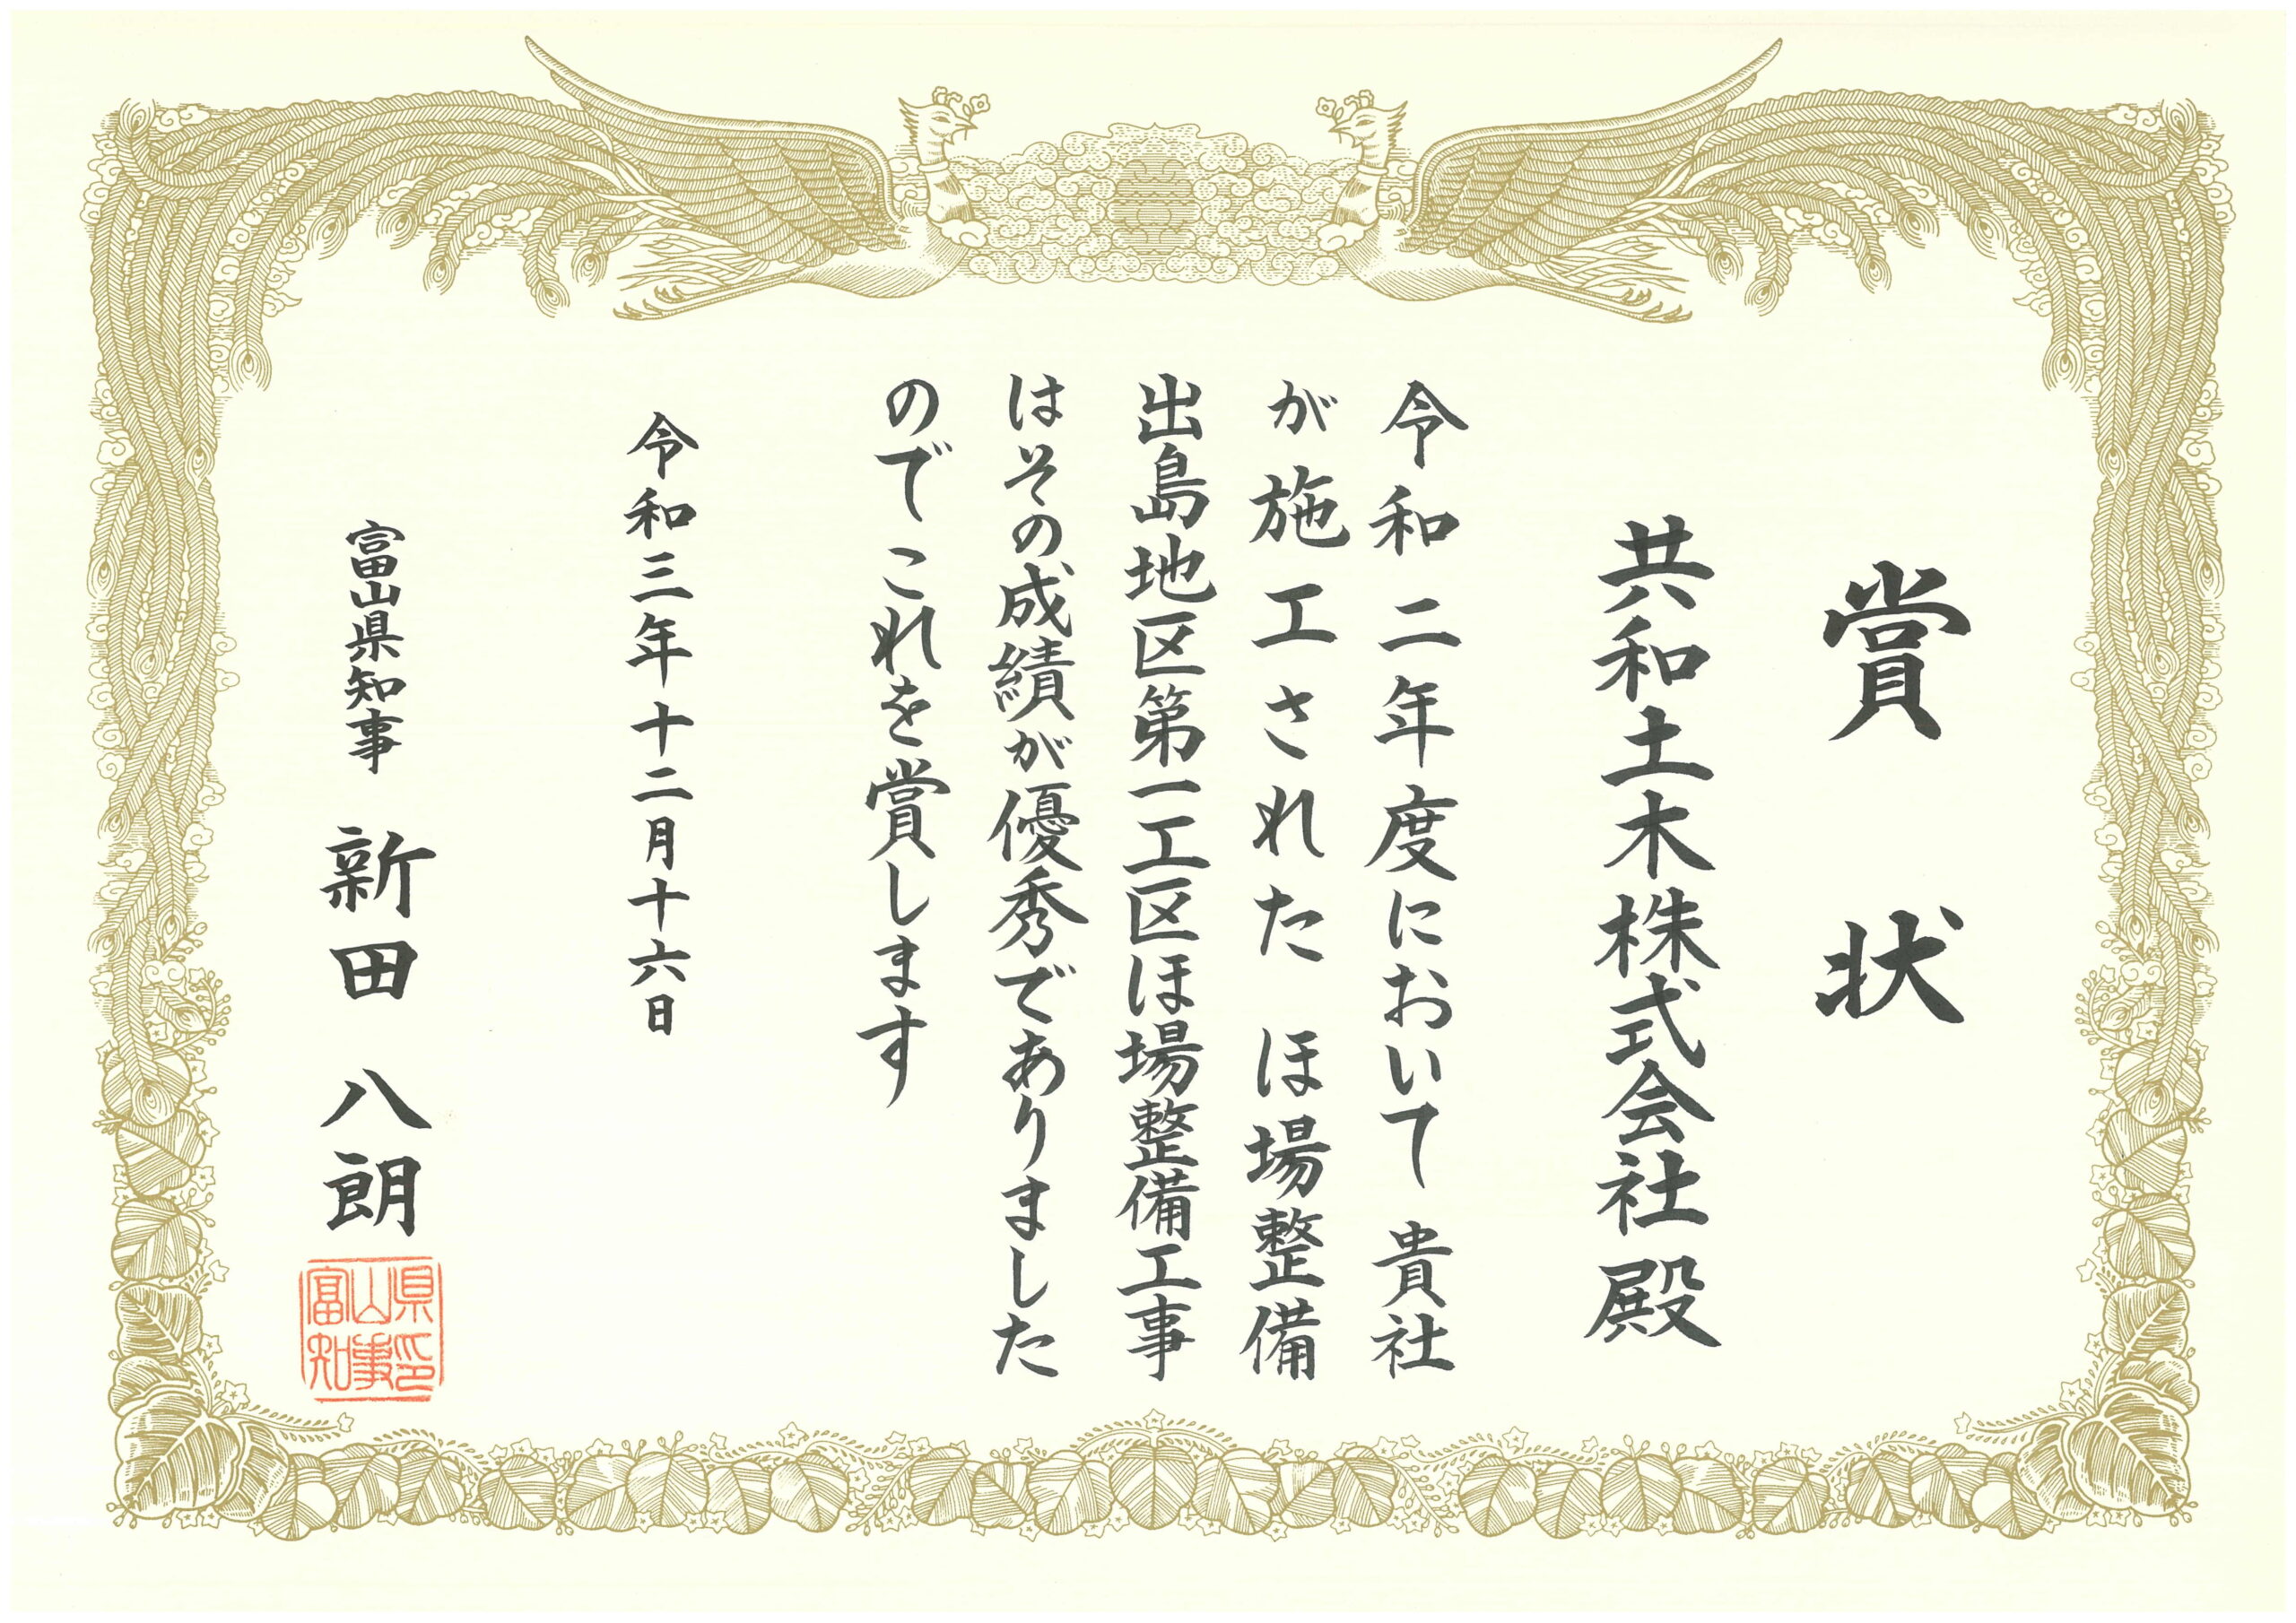 賞状
共和土木株式会社 殿
令和二年度において 貴社
が施工された ほ場整備
出島地区第一工区ほ場整備工事
はその成績が優秀でありました
のでこれを賞します
令和三年十二月十六日
富山県知事 新田 八朗
富山県
知事印